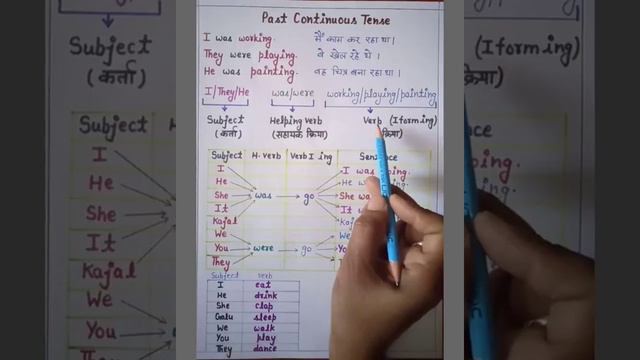 Past Continuous Tense
I was working. मैं काम कर रहा था।
They were playing. वे खेल रहे थे।
He was painting. वह चित्र बना रहा था।
I/They/He was/were working/playing/painting
Subject Helping verb Verb (I form ing)
(कर्ता) (सहायक क्रिया) क्रिया)
Subject H. verb Verb I ing Sentence
I I was going.
He He
She was go She was
It It
Kajal
We We
You were go You
They
Subject verb
I eat
He drink
She clap
Golu sleep
We walk
You play
They dance
Subject
(कर्ता)
I
He
She
It
Kajal
We
You
They
(I form ing)
क्रिया)